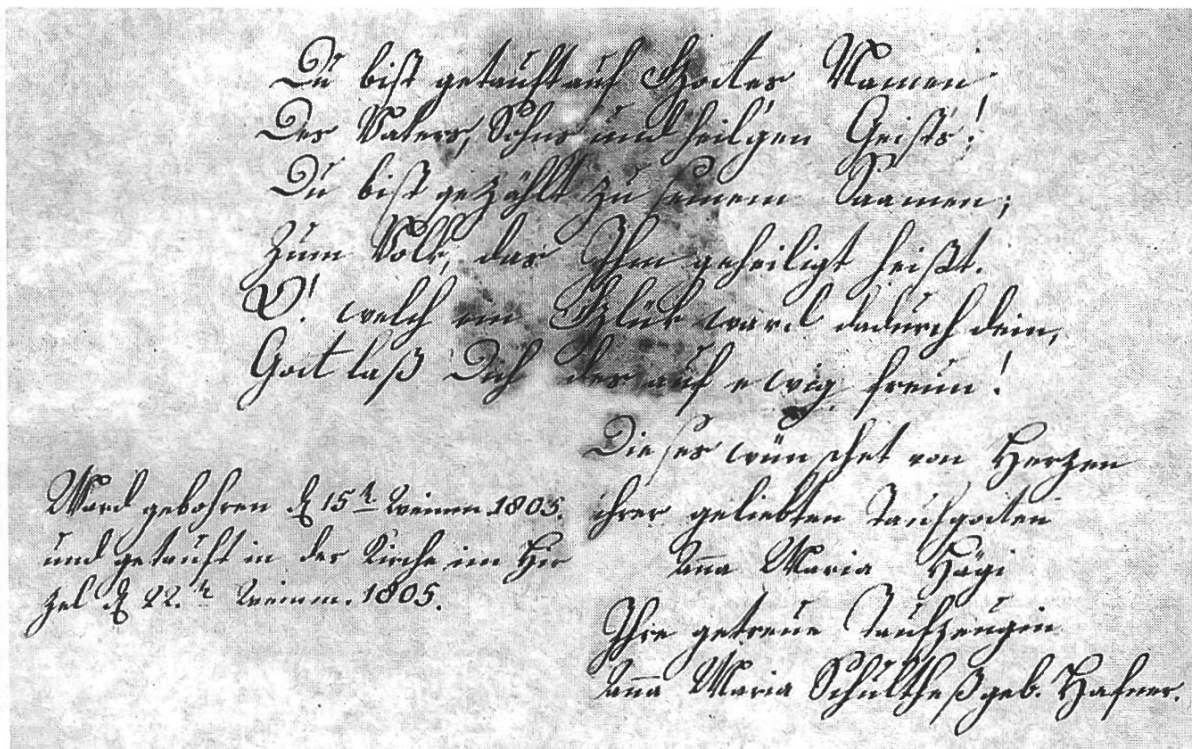 Du bist getauft auf Gottes Namen
Des Vaters, Sohns und heil'gen Geists!
Du bist gezählt zu seinem Saamen;
Zum Volk, das Ihm geheiligt heißt.
O! welch ein Glük ward dadurch dein,
Gott laß Dich des auf ewig freun!
Dieses wünschet von Herzen
ihrer geliebten Taufgotten
Anna Maria Hägi
Ihre getreue Taufzeugin
Anna Maria Schultheß geb. Hafner.
Ward gebohren d. 15t. Weinm. 1805.
und getauft in der Kirche im Hir
zel d. 22.t. Weinm. 1805.